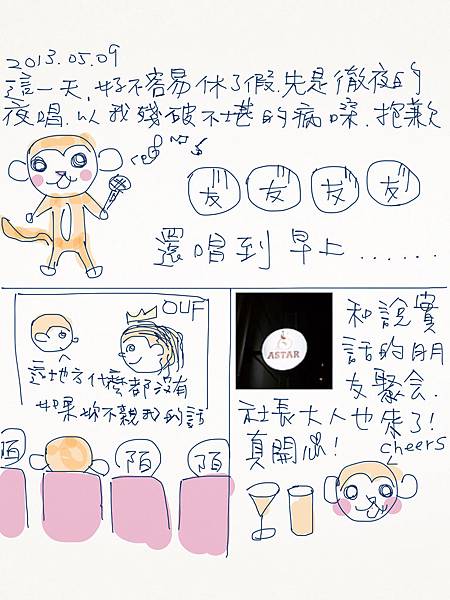 2013.05.09
這一天,好不容易休了假.先是徹夜的
夜唱.以我殘破不堪的病嗓.抱歉
友 友 友 友
還唱到早上......
OUF
這地方什麼都沒有
如果妳不親我的話
陌 陌 陌
ASTAR
和說實
話的朋
友聚会.
社長大人也來了!
真開心!
cheers